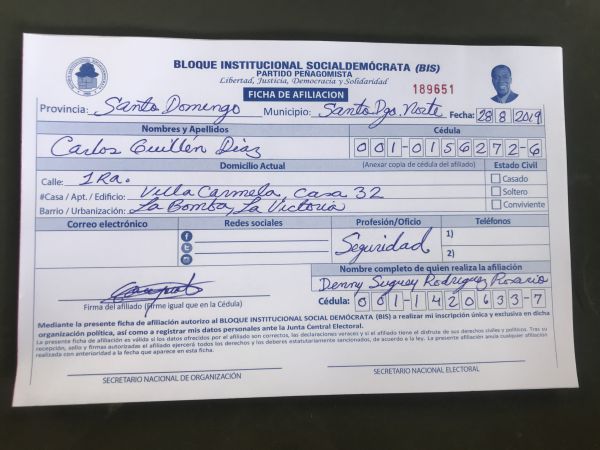 BLOQUE INSTITUCIONAL SOCIALDEMÓCRATA (BIS)
PARTIDO PEÑAGOMISTA
Libertad, Justicia, Democracia y Solidaridad
FICHA DE AFILIACION 189651
Provincia: Santo Domingo Municipio: Santo Dgo. Norte Fecha: 28 8 2019
Nombres y Apellidos Cédula
Carlos Guillén Diaz 001-0156272-6
Domicilio Actual (Anexar copia de cédula del afiliado) Estado Civil
Calle: 1Ra. Casado
#Casa / Apt. / Edificio: Villa Carmela, Casa 32 Soltero
Barrio / Urbanización: La Bomba, La Victoria Conviviente
Correo electrónico Redes sociales Profesión/Oficio Teléfonos
Seguridad 1)
2)
Nombre completo de quien realiza la afiliación
Denny Sugey Rodriguez Rosario
Firma del afiliado (firme igual que en la Cédula) Cédula: 001-1420633-7
Mediante la presente ficha de afiliación autorizo al BLOQUE INSTITUCIONAL SOCIAL DEMÓCRATA (BIS) a realizar mi inscripción única y exclusiva en dicha
organización política, así como a registrar mis datos personales ante la Junta Central Electoral.
La presente ficha de afiliación es válida si los datos ofrecidos por el afiliado son correctos, las declaraciones veraces y si el afiliado tiene el disfrute de sus derechos civiles y políticos. Tras su
recepción, sello y firmas autorizadas el afiliado ejercerá todos los derechos y los deberes estatutariamente sancionados, de acuerdo a la ley. La presente afiliación anula cualquier afiliación
realizada con anterioridad a la fecha que aparece en esta ficha.
SECRETARIO NACIONAL DE ORGANIZACIÓN SECRETARIO NACIONAL ELECTORAL